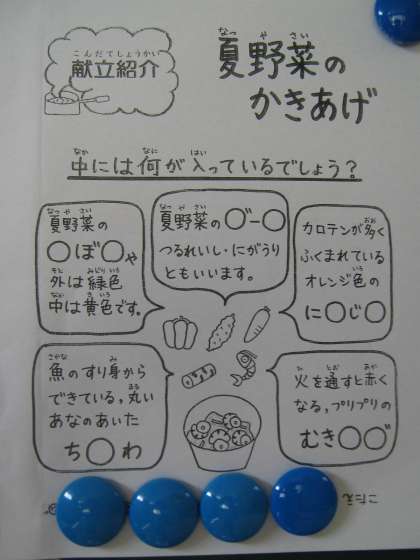 こんだてしょうかい
献立紹介
なつやさい
夏野菜の
かきあげ
なか なに はい
中には何が入っているでしょう？
なつやさい
夏野菜の
○ぼ○や
そと みどりいろ
外は緑色
なか きいろ
中は黄色です。
なつやさい
夏野菜の○゛ー○
つるれいし・にがうり
ともいいます。
おお
カロテンが多く
ふくまれている
いろ
オレンジ色の
に○じ○
さかな み
魚のすり身から
まる
できている，丸い
あなのあいた
ち○わ
ひ とお あか
火を通すと赤く
なる，プリプリの
むき○○゛
こたえ